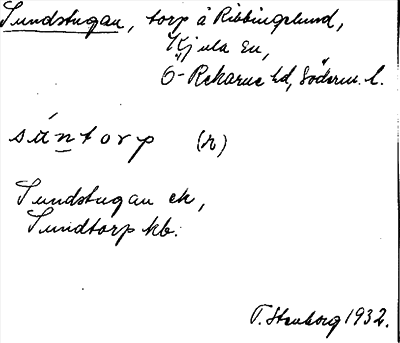 Sundstugan, torp å Ribbingelund,
Kjula sn,
Ö-Rekarne hd, Söderm. l.
sún̲torp (r)
Sundstugan ek,
Sundtorp kb.
T. Stenborg 1932.